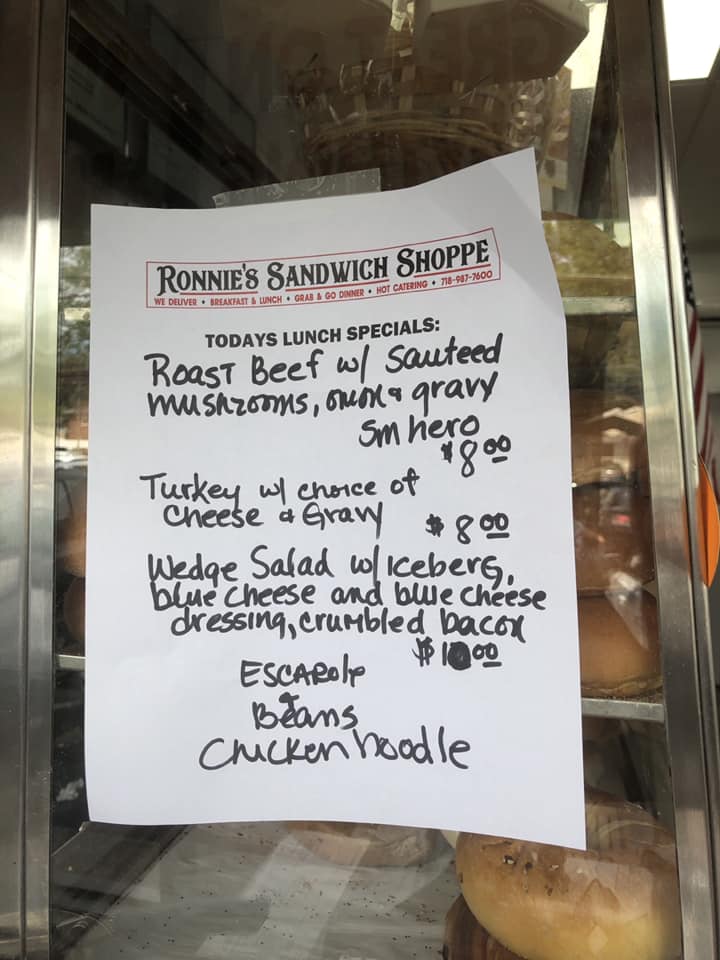 RONNIE'S SANDWICH SHOPPE
WE DELIVER • BREAKFAST & LUNCH • GRAB & GO DINNER • HOT CATERING • 718-987-7600
TODAYS LUNCH SPECIALS:
Roast Beef w/ Sauteed
mushrooms, onion & gravy
Sm hero
$8.00
Turkey w/ choice of
Cheese & Gravy $8.00
Wedge Salad w/ Iceberg,
blue cheese and blue cheese
dressing, crumbled bacon
$10.00
Escarole
&
Beans
Chicken noodle